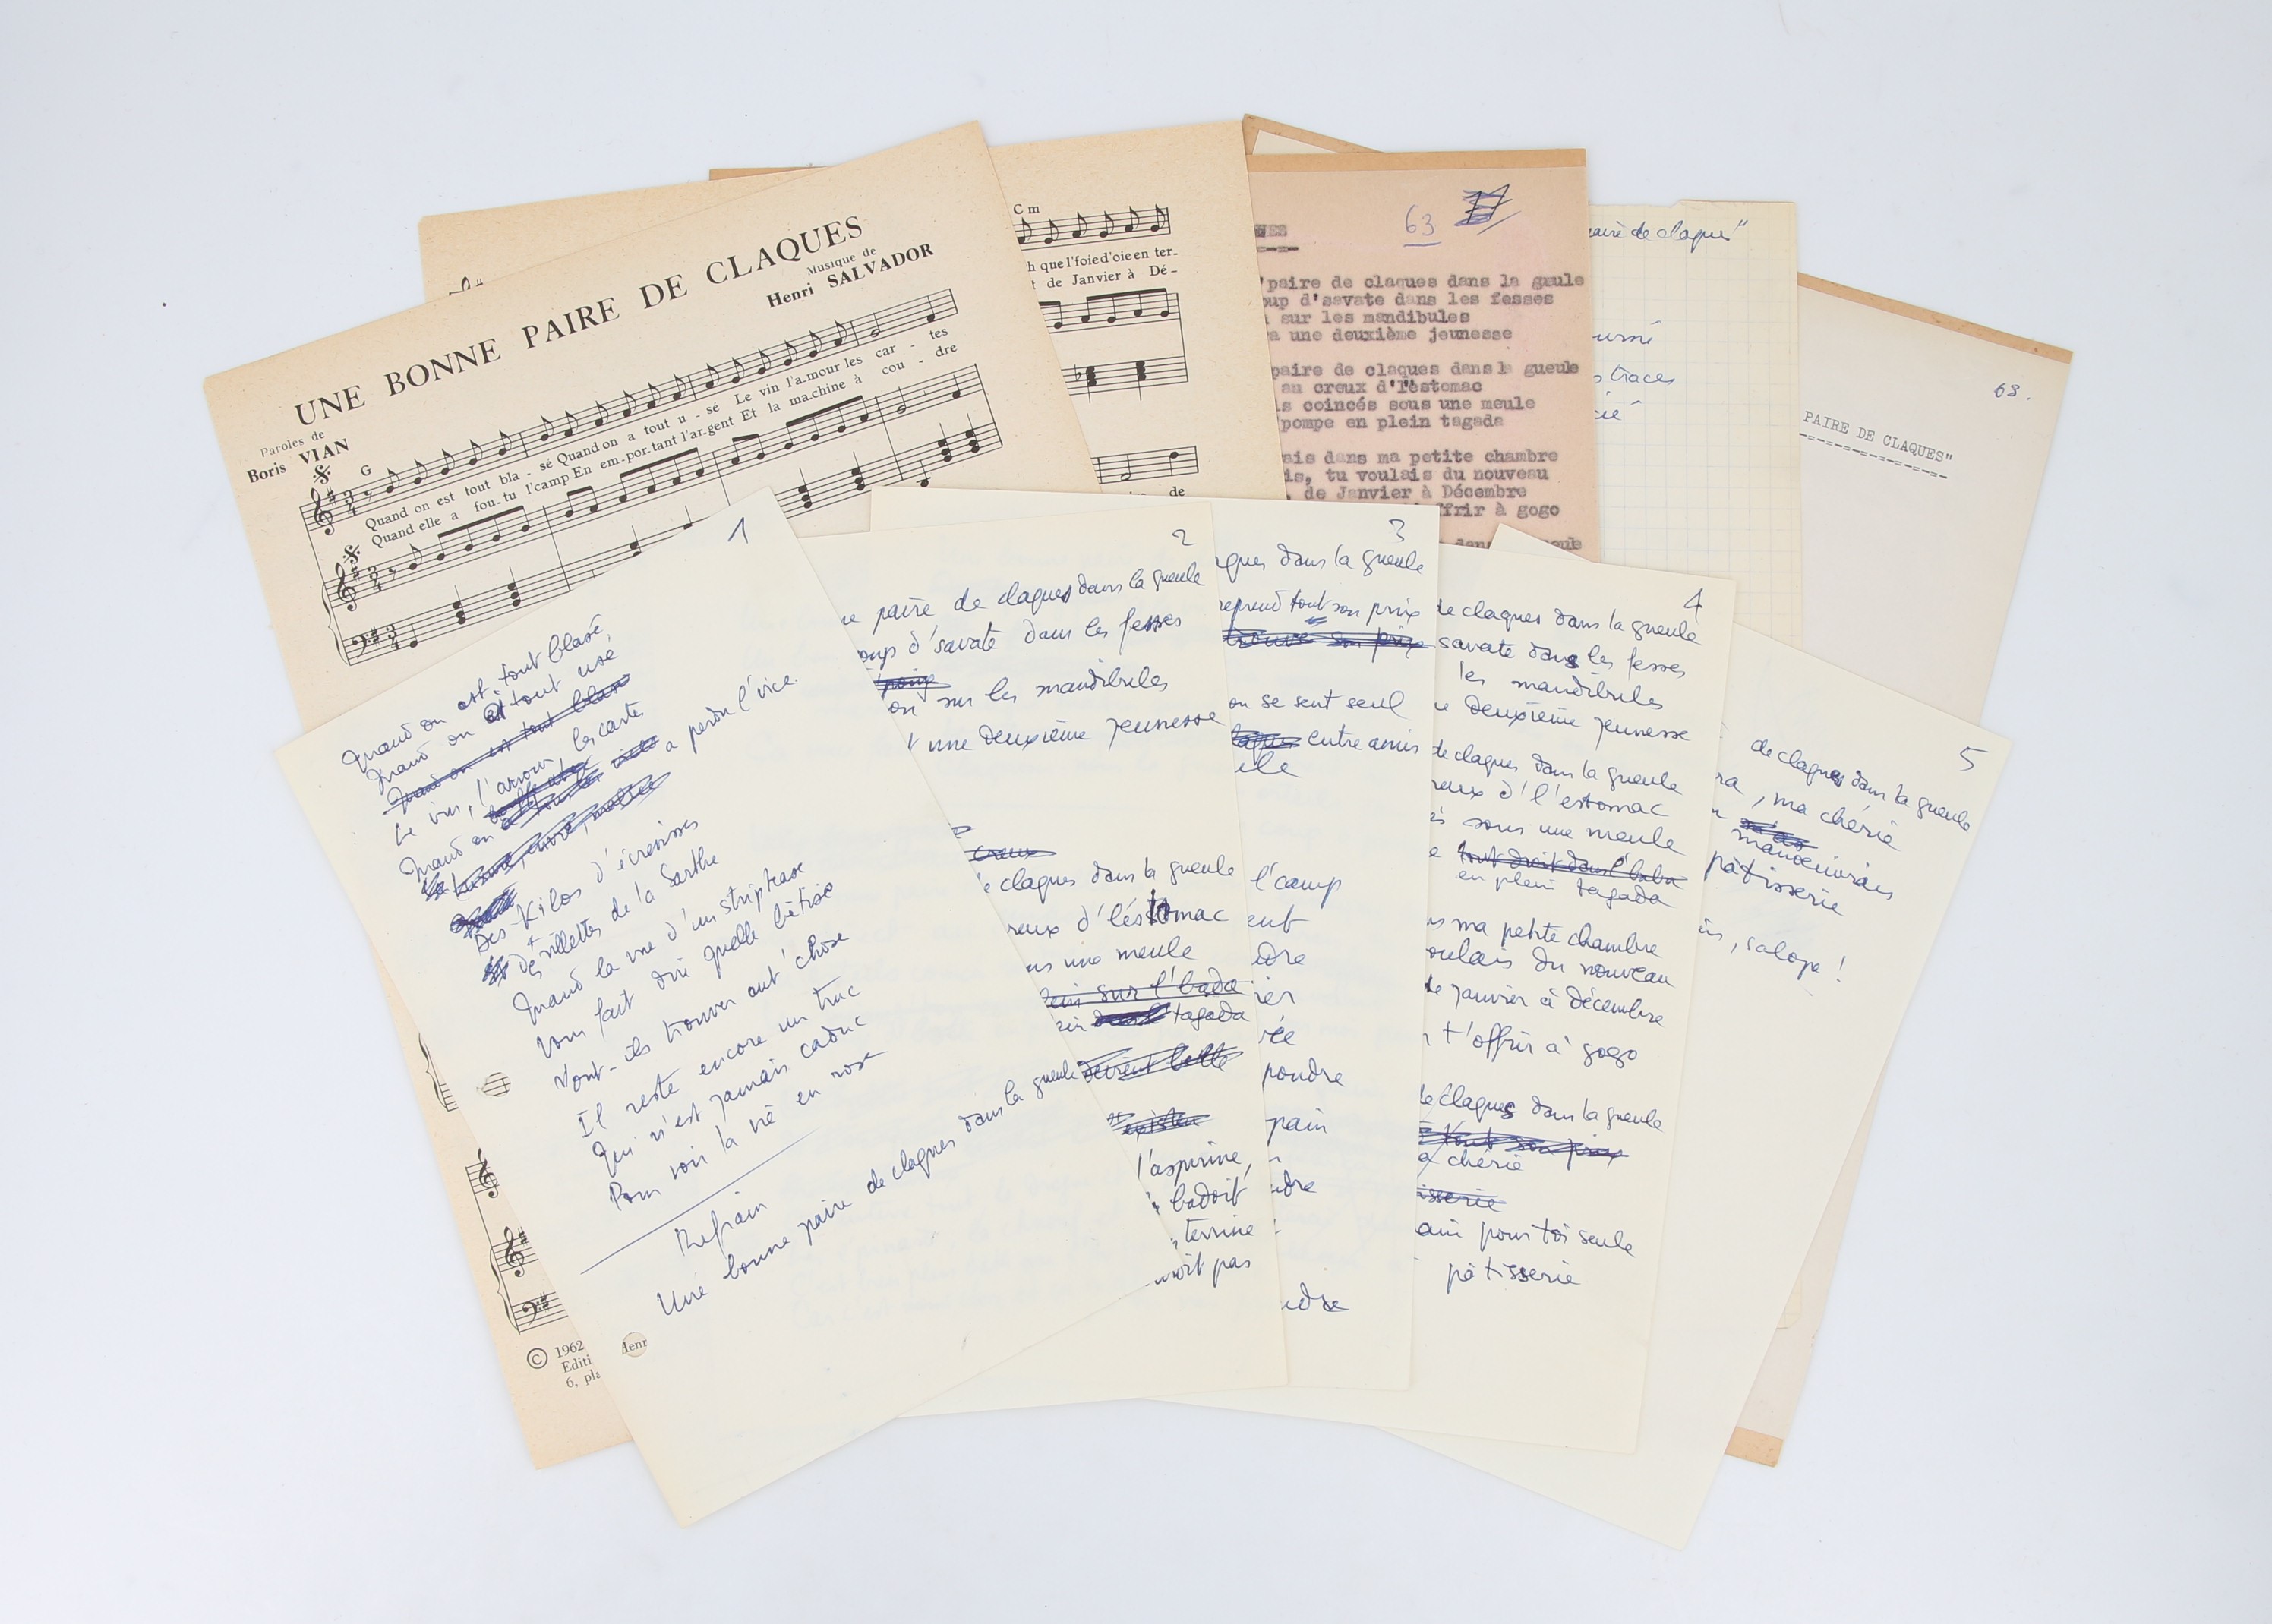 UNE BONNE PAIRE DE CLAQUES
Paroles de
Boris VIAN
Musique de
Henri SALVADOR
G
Quand on est tout bla - sé Quand on a tout u - sé Le vin l'a-mour les car - tes
Quand elle a fou-tu l'camp En em-por-tant l'ar-gent Et la ma-chine à cou - dre
© 1962
Editi
6, pla
Henr
Cm
h que l'foie d'oie en ter-
t de Janvier à Dé-
de
63
UES
'paire de claques dans la gueule
oup d'savate dans les fesses
sur les mandibules
a une deuxième jeunesse
paire de claques dans la gueule
au creux d'l'estomac
is coincés sous une meule
pompe en plein tagada
ais dans ma petite chambre
is, tu voulais du nouveau
, de Janvier à Décembre
ffrir à gogo
paire de claques"
urné
s traces
cié
63.
PAIRE DE CLAQUES"
1
Quand on est tout blasé
Quand on a tout usé,
Quand on est tout blasé
Le vin, l'amour les cartes
Quand on a perdu l'vice.
Des Kilos d'écrevisses
Des rillettes de la Sarthe
Quand la vue d'un striptease
Vous fait dire quelle bêtise
Vont-ils trouver aut'chose
Il reste encore un truc
Qui n'est jamais caduc
Pour voir la vie en rose
Refrain
Une bonne paire de claques dans la gueule
2
ne paire de claques dans la gueule
oup d'savate dans les fesses
poing
on sur les mandibules
t une deuxième jeunesse
creux
e claques dans la gueule
reux d'l'éstomac
us une meule
lein sur l'bada
ein tagada
devient belle
existen
l'aspirine,
badoit
terrine
uvoit pas
3
aques dans la gueule
reprend tout son prix
trouve son prix
on se sent seul
entre amis
elle
l'camp
ent
udre
ier
vée
poudre
pain
udre
udre
4
de claques dans la gueule
savate dans les fesses
les mandibules
e deuxième jeunesse
de claques dans la gueule
reux d'l'estomac
és sous une meule
e tout droit dans l'baba
en plein tagada
ns ma petite chambre
oulais du nouveau
de janvier à décembre
t'offrir à gogo
de claques dans la gueule
tout son prix
a chérie
isserie
ain pour toi seule
pâtisserie
5
de claques dans la gueule
ra, ma chérie
manoeuvrais
pâtisserie
is, salope !